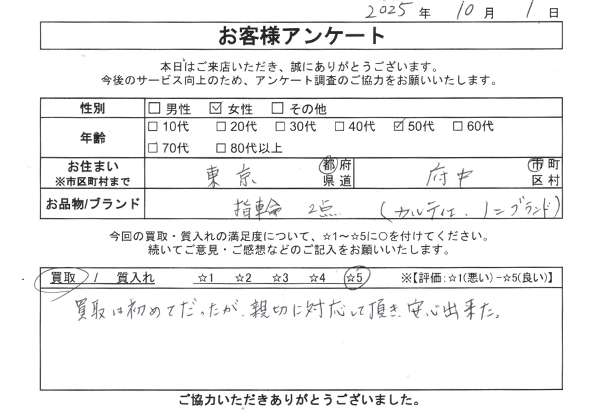 2025 年 10 月 1 日
お客様アンケート
本日はご来店いただき、誠にありがとうございます。
今後のサービス向上のため、アンケート調査のご協力をお願いいたします。
性別 □ 男性 ☑ 女性 □ その他
年齢 □ 10代 □ 20代 □ 30代 □ 40代 ☑ 50代 □ 60代
□ 70代 □ 80代以上
お住まい 東京 都府 府中 市町
※市区町村まで 県道 区村
お品物/ブランド 指輪 2点 (カルティエ、ノンブランド)
今回の買取・質入れの満足度について、☆1～☆5に○を付けてください。
続いてご意見・ご感想などのご記入をお願いいたします。
買取 / 質入れ ☆1 ☆2 ☆3 ☆4 ☆5 ※【評価:☆1(悪い)−☆5(良い)】
買取は初めてだったが、親切に対応して頂き、安心出来た。
ご協力いただきありがとうございました。